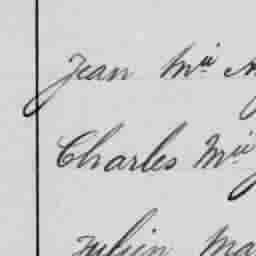 Jean Mie
Charles Mie
Julien Ma